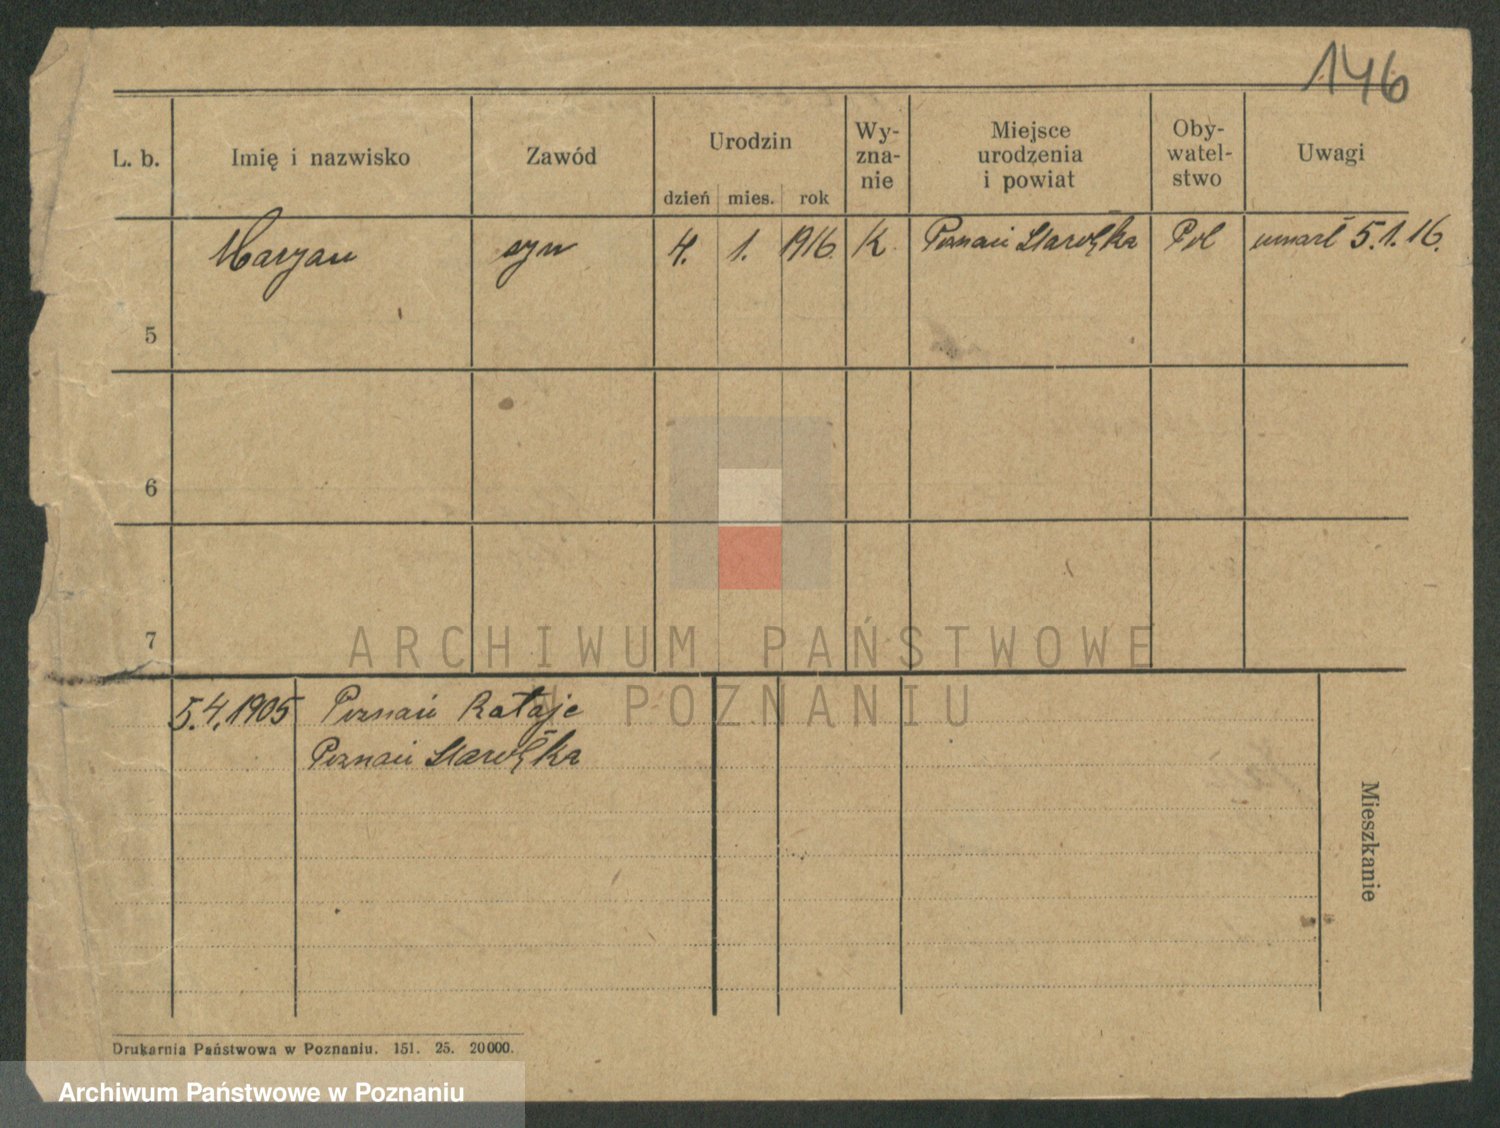 146
L. b. Imię i nazwisko Zawód Urodzin Wy- Miejsce Oby- Uwagi
zna- urodzenia watel-
nie i powiat stwo
dzień mies. rok
Maryan syn 4. 1. 1916 K Poznań Starołęka Pol umarł 5.1.16.
5
6
7
ARCHIWUM PAŃSTWOWE
W POZNANIU
5.4.1905 Poznań Rataje
Poznań Starołęka
Mieszkanie
Drukarnia Państwowa w Poznaniu. 151. 25. 20000.
Archiwum Państwowe w Poznaniu